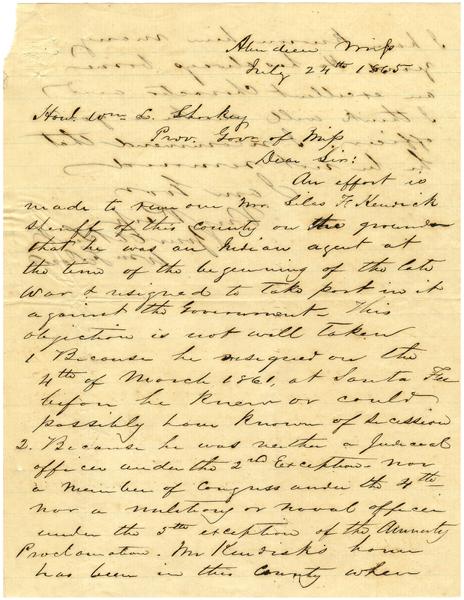 Aberdeen Miss
July 24th 1865
Hon. Wm L. Sharkey
Prov. Govr of Miss
Dear Sir:
An effort is
made to remove Mr. Silas F. Kendrick
sheriff of this county on the grounds
that he was an Indian agent at
the time of the beginning of the late
war & resigned to take part in it
against the Government – This
objection is not well taken
1. Because he resigned on the
4th of March 1861, at Santa Fee
before he knew or could
possibly have known of secession
2. Because he was neither a Judicial
officer under the 2nd Exception – nor
a member of Congress under the 4th
nor a military or naval officer
under the 5th exception of the Amnesty
Proclamation. Mr Kendrick's home
has been in this County when